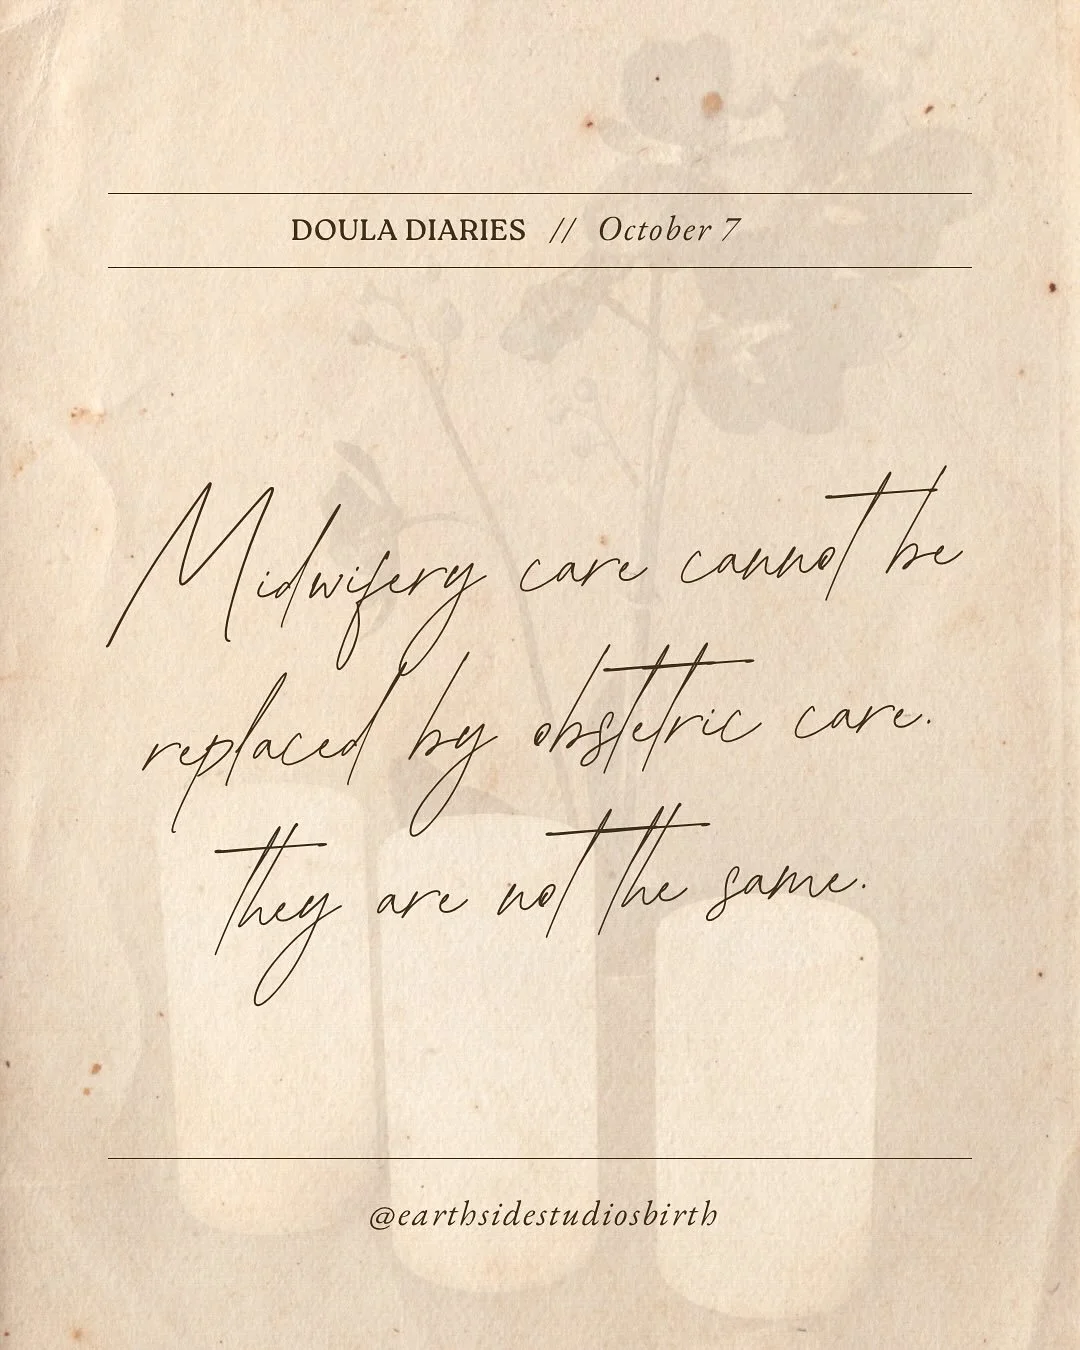 DOULA DIARIES // October 7
Midwifery care cannot be
replaced by obstetric care.
they are not the same.
@earthsidestudiosbirth